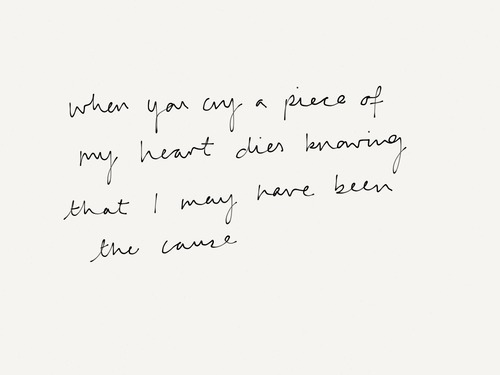 when you cry a piece of
my heart dies knowing
that I may have been
the cause